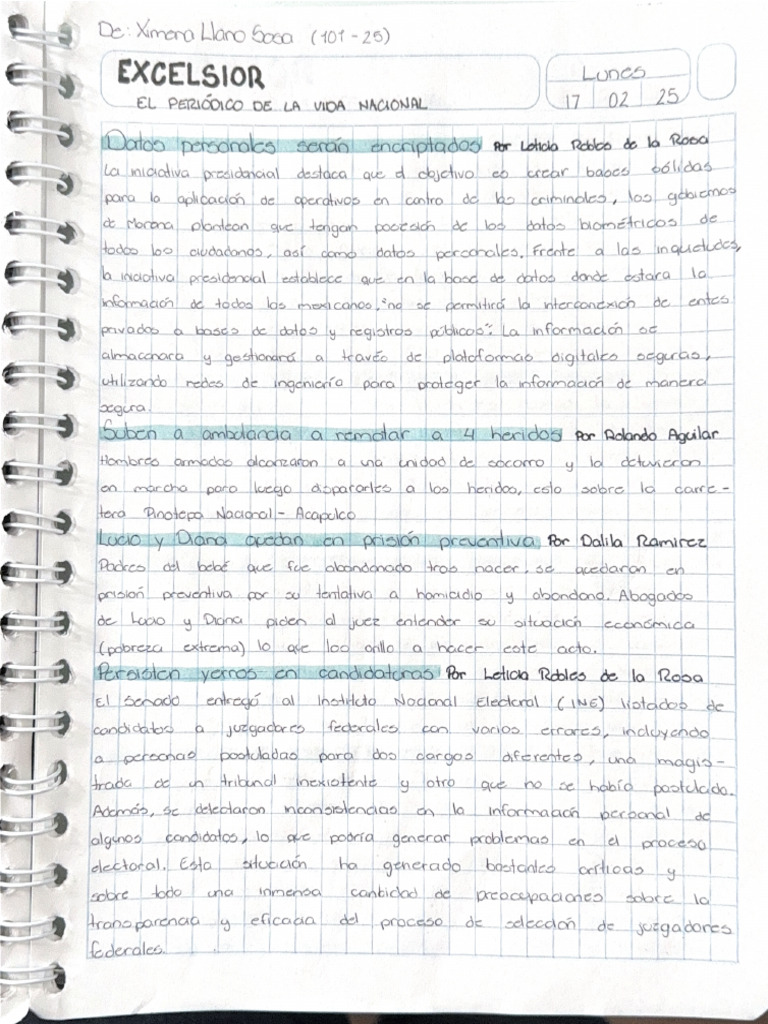 De: Ximena Llano Sosa (101-25)
EXCELSIOR
EL PERIÓDICO DE LA VIDA NACIONAL
Lunes
17 02 25
Datos personales serán encriptados Por Leticia Robles de la Rosa
La iniciativa presidencial destaca que el objetivo es crear bases sólidas
para la aplicación de operativos en contra de los criminales, los gobiernos
de Morena plantean que tengan posesión de los datos biométricos de
todos los ciudadanos, así como datos personales. Frente a las inquietudes,
la iniciativa presidencial establece que en la base de datos donde estara la
información de todos los mexicanos, "no se permitirá la interconexión de entes
privados a bases de datos y registros públicos". La información se
almacenara y gestionará a través de plataformas digitales seguras,
utilizando redes de ingeniería para proteger la información de manera
segura.
Suben a ambulancia a rematar a 4 heridos Por Rolando Aguilar
Hombres armados alcanzaron a una unidad de socorro y la detuvieron
en marcha para luego dispararles a los heridos, esto sobre la carre-
tera Pinotepa Nacional - Acapulco
Lucio y Diana quedan en prisión preventiva Por Dalila Ramirez
Padres del bebé que fue abandonado tras nacer, se quedaran en
prisión preventiva por su tentativa a homicidio y abandono. Abogados
de Lucio y Diana piden al juez entender su situación económica
(pobreza extrema) lo que los orillo a hacer este acto.
Persisten yerros en candidaturas Por Leticia Robles de la Rosa
El Senado entregó al Instituto Nacional Electoral (INE) listados de
candidatos a juzgadores federales con varios errores, incluyendo
a personas postuladas para dos cargos diferentes, una magis-
trada de un tribunal inexistente y otro que no se había postulado.
Además, se detectaron inconsistencias en la información personal de
algunos candidatos, lo que podría generar problemas en el proceso
electoral. Esta situación ha generado bastantes críticas y
sobre todo una inmensa cantidad de preocupaciones sobre la
transparencia y eficacia del proceso de selección de juzgadores
federales.